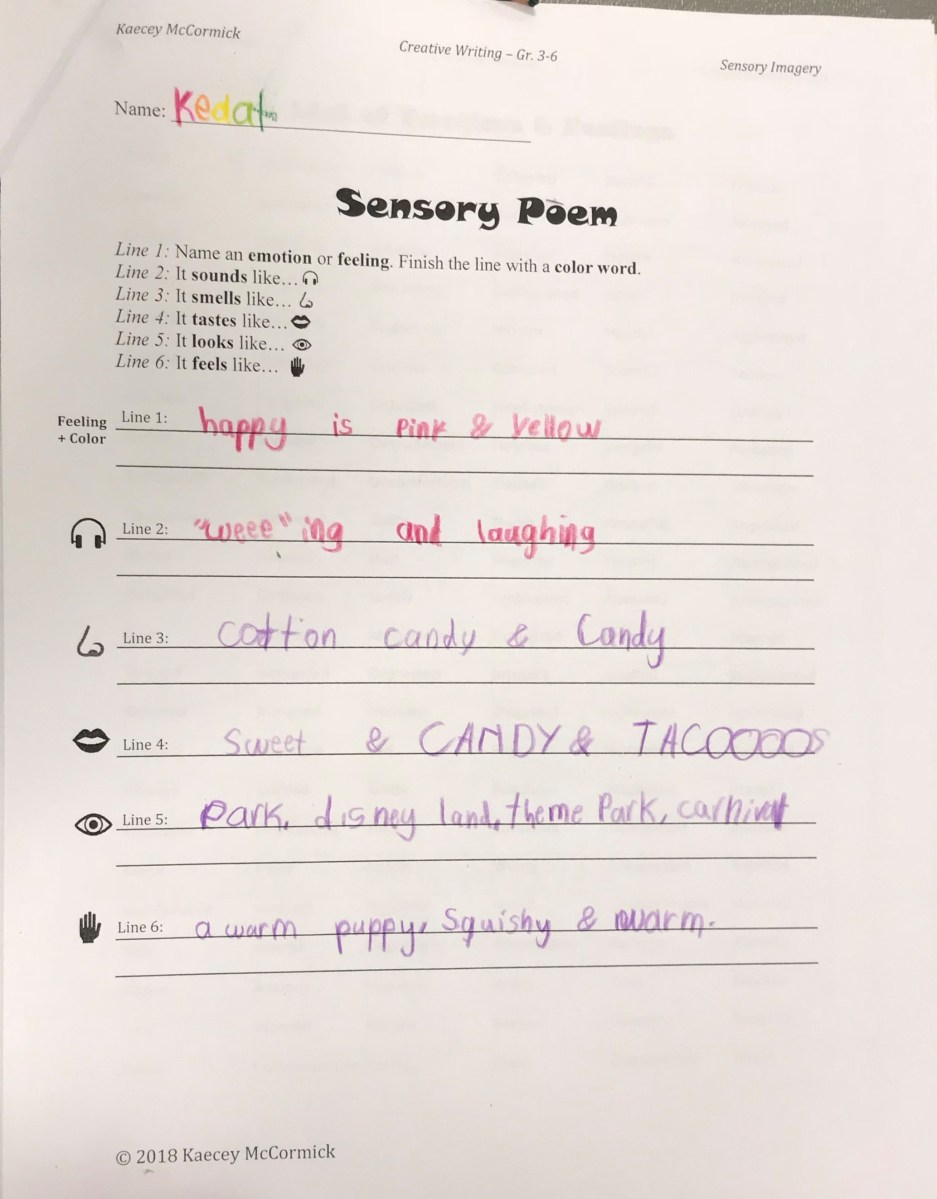 Kaecey McCormick
Creative Writing – Gr. 3-6
Sensory Imagery
Name: Kedat
Sensory Poem
Line 1: Name an emotion or feeling. Finish the line with a color word.
Line 2: It sounds like…
Line 3: It smells like…
Line 4: It tastes like…
Line 5: It looks like…
Line 6: It feels like…
Feeling + Color
Line 1: happy is pink & yellow
Line 2: "weee"ing and laughing
Line 3: cotton candy & Candy
Line 4: Sweet & CANDY & TACOOOOS
Line 5: Park, disney land, theme Park, carnival
Line 6: a warm puppy, Squishy & warm.
© 2018 Kaecey McCormick